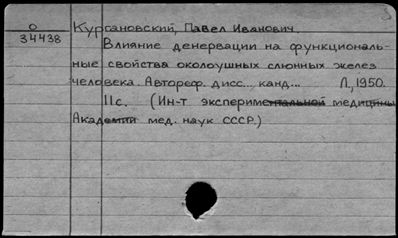 О
34438
Кургановский, Павел Иванович.
Влияние денервации на функциональ-
ные свойства околоушных слюнных желез
человека. Автореф. дисс... канд... Л., 1950.
11с. (Ин-т экспериментальной медицины
Академии мед. наук СССР.)